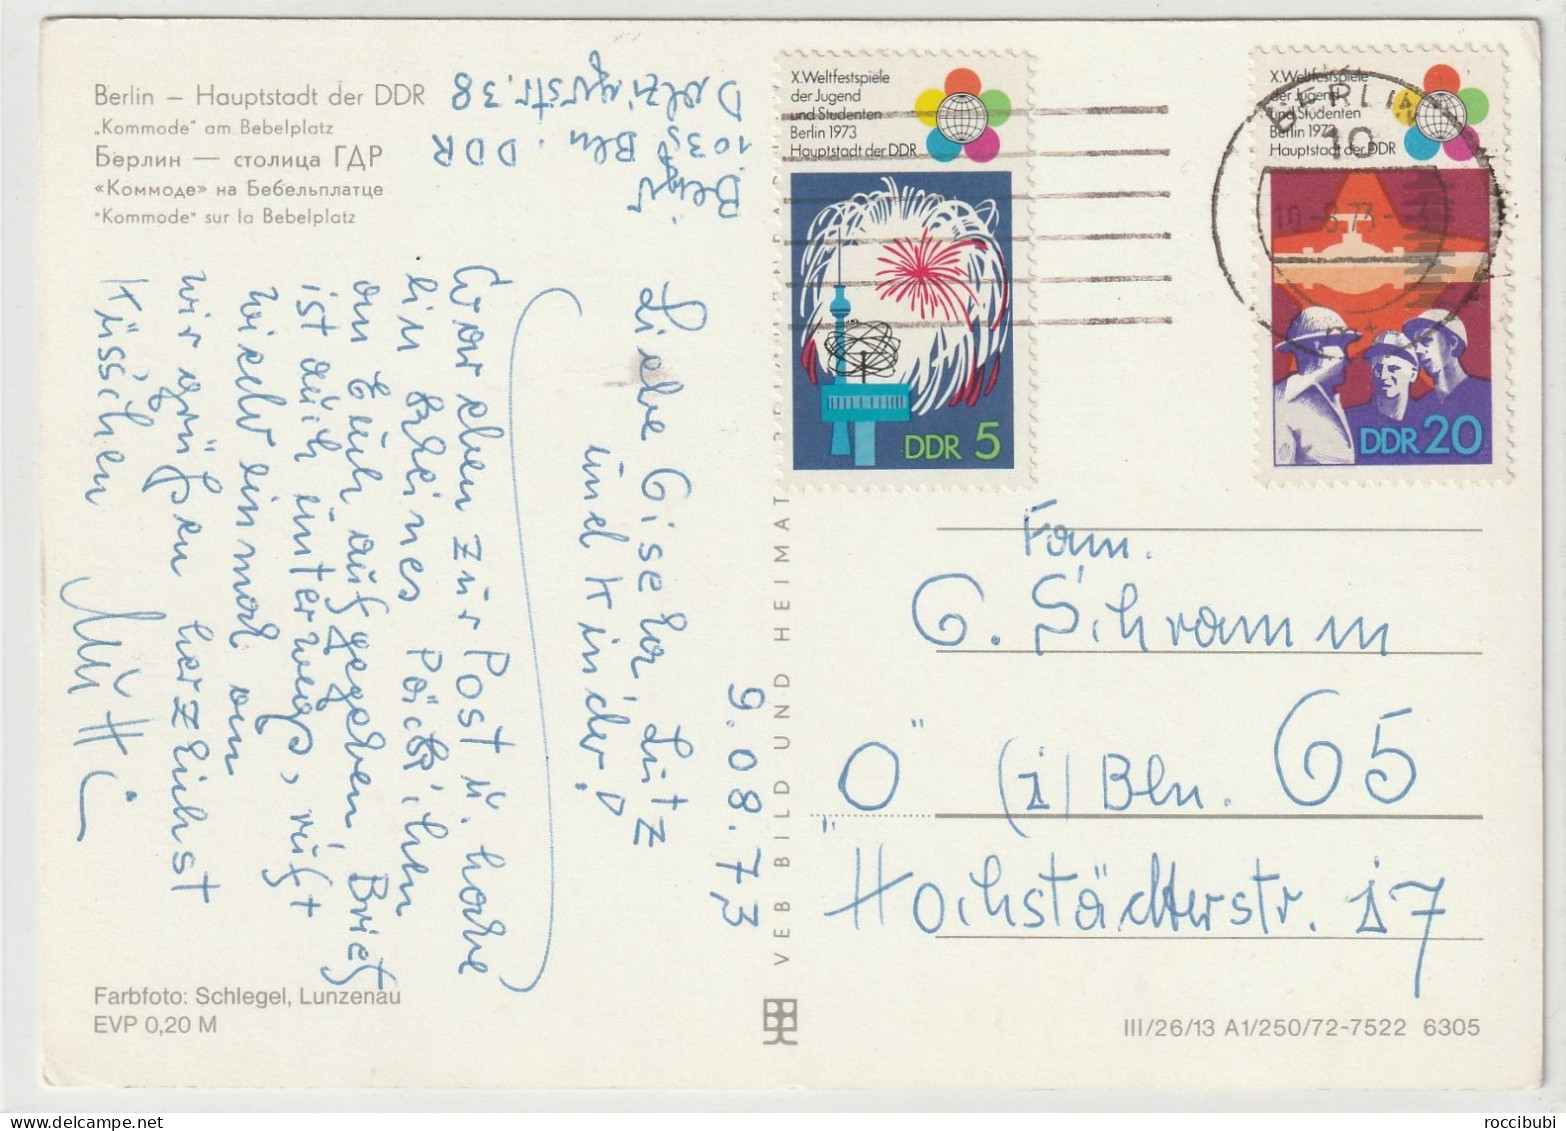 Berlin – Hauptstadt der DDR
„Kommode" am Bebelplatz
Берлин — столица ГДР
«Коммоде» на Бебельплатце
"Kommode" sur la Bebelplatz
1035 Bln. DDR
9.08.73
Liebe Gisela, Lutz
und Kinder!
War eben zur Post u. habe
ein kleines Päckchen
an Euch aufgegeben. Brief
ist auch unterwegs, ruft
wieder einmal an
wir grüßen herzlichst
Küsschen
Mutti
Farbfoto: Schlegel, Lunzenau
EVP 0,20 M
VEB BILD UND HEIMAT
X. Weltfestspiele
der Jugend
und Studenten
Berlin 1973
Hauptstadt der DDR
DDR 5
X. Weltfestspiele
der Jugend
und Studenten
Berlin 1973
Hauptstadt der DDR
DDR 20
BERLIN
10
Fam.
G. Schramm
(1) Bln. 65
Hochstädterstr. 17
III/26/13 A1/250/72-7522 6305
roccibubi